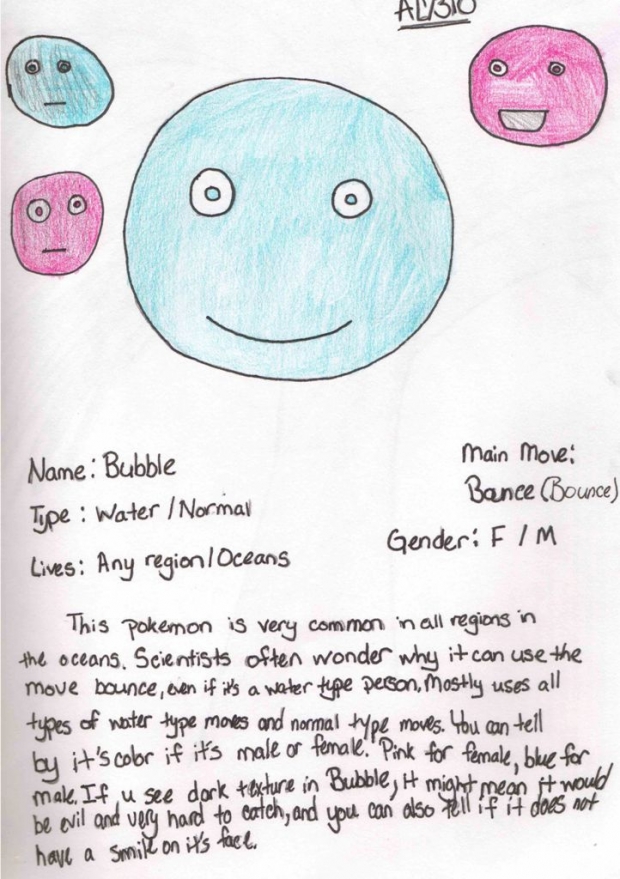 Name: Bubble
Main Move:
Type: Water / Normal
Bance (Bounce)
Lives: Any region / Oceans
Gender: F / M
This pokemon is very common in all regions in
the oceans. Scientists often wonder why it can use the
move bounce, even if it's a water type person. Mostly uses all
types of water type moves and normal type moves. You can tell
by it's color if it's male or female. Pink for female, blue for
male. If u see dark texture in Bubble, it might mean it would
be evil and very hard to catch, and you can also tell if it does not
have a smile on it's face.